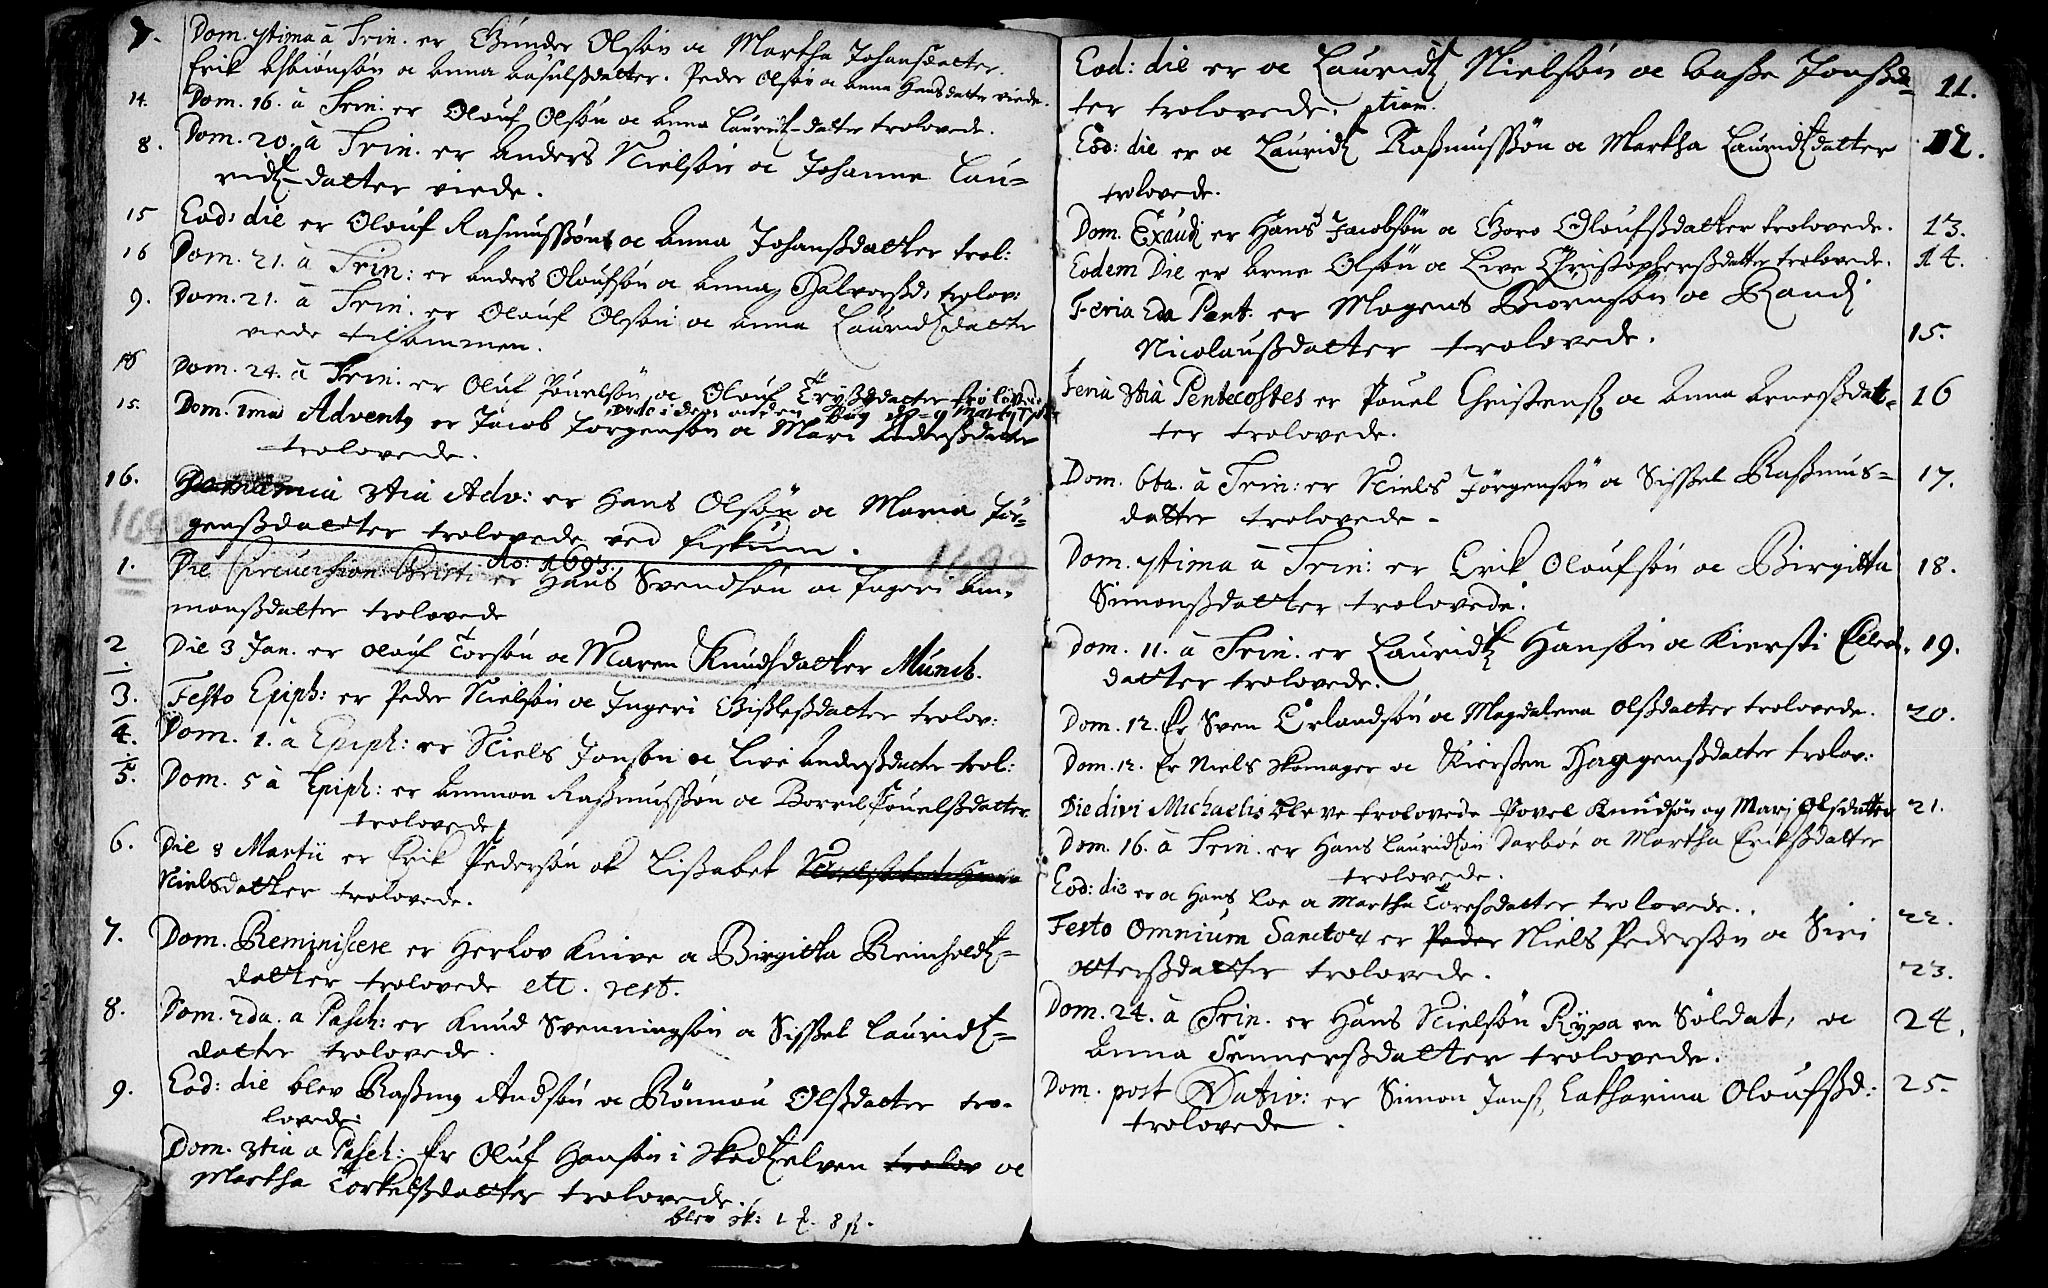 7. Dom. 7tima à Trin. er Gunder Olsøn oc Martha Johansdatter.
Erik Asbiønsøn oc Anna Axelsdatter. Peder Olsøn oc Anna Hansdatter viede.
14. Dom. 16. à Trin: er Olouf Olsøn oc Anna Lauridtz-datter trolovede.
8. Dom. 20. à Trin. er Anders Nielsøn oc Johanne Lau=
ridtz-datter viede.
15 Eod: die er Olouf Rasmussøn oc Anna Johanssdatter trol:
16 Dom. 21. à Trin: er Anders Oloufsøn oc Anna Halvorssd. trolov:
9. Dom. 21. à Trin. er Olouf Olsøn oc Anna Lauridtzdatter
viede tilsammen.
Dom. 24. à Trin. er Oluf Pouelsøn oc Olouf datter trolovede
15. Dom. 1ma Advent9 er Jacob Jørgensøn oc Mari Anderssdatter
trolovede.
16. 3tia Adv: er Hans Olsøn oc Maria Jør=
genssdatter trolovede ved Fiskum.
Ao: 1693.
1. Die Circumcision. Christi er Hans Svendsøn oc Ingeri Am.
monssdatter trolovede
2 Die 3 Jan. er Olouf Torsøn oc Maren Knudsdatter Munch.
3. Festo Epiph: er Peder Nielsøn oc Ingeri Gisslessdatter trolov:
4. Dom. 1. à Epiph: er Niels Jonsøn oc Live Anderssdatter trol:
5. Dom. 5 à Epiph: er Ammon Rasmussøn oc Borril Pouelssdatter
trolovede
6. Die 8 Martii er Erik Pedersøn oc Lissabet
Nielsdatter trolovede.
7. Dom. Reminiscere er Herlov Knive oc Birgitta Reinholdtz=
datter trolovede ett. rest.
8. Dom. 2da. a Pasch: er Knud Svenningsøn oc Sissel Lauridtz=
datter trolovede.
9. Eod: die blev Rasm9 Andsøn oc Rønnou Olssdatter tro-
lovede:
Dom. 3tia a Pasch: Er Oluf Hansøn i Skodtzelven trolov oc
Martha Torkelssdatter trolovede.
blev sk: 1 8 ß.
Eod: die er oc Lauridtz Nielsøn oc Aasse Jonssda= 11.
ter trolovede.
Eod: die er oc Lauridtz Rasmussøn oc Martha Lauridtzdatter 12.
trolovede.
Dom. Exaudi er Hans Jacobsøn oc Goro Oloufssdatter trolovede. 13.
Eodem Die er Arne Olsøn oc Live Christopherssdatter trolovede. 14.
Feria 2da Pent: er Mogens Biørnsøn oc Randi
Nicolaussdatter trolovede. 15.
Feria 3tia Pentecostes er Pouel Christens oc Anna Arnessdat= 16
ter trolovede.
Dom. 6ta. à Trin: er Niels Jørgensøn oc Sissel Rasmus= 17.
datter trolovede -
Dom. 7tima à Trin: er Erik Oloufsøn oc Birgitta 18.
Simonssdatter trolovede.
Dom. 11. à Trin. er Lauridtz Hansøn oc Kiersti Ellevs. 19.
datter trolovede.
Dom. 12. Er Sven Erlandsøn oc Magdalena Olssdatter trolovede. 20.
Dom. 12. Er Niels Skomager oc Kiersten datter trolov:
Die divi Michaelis bleve trolovede Povel Knudsøn og Mari Olsdatter 21.
Dom. 16. à Trin. er Hans Lauridtsøn Darboe oc Martha Erikssdatter
trolovede.
Eod: die er oc Hans Loe oc Martha Toressdatter trolovede.
Festo Omnium Sanctor er Peder Niels Pedersøn oc Siri 22.
Otterssdatter trolovede. 23.
Dom. 24. à Trin. er Hans Nielsøn Rypa en Soldat, oc 24.
Anna Gunnerssdatter trolovede.
Dom. post Nativ: er Simon Jens, Catharina Oloufssd: 25.
trolovede.